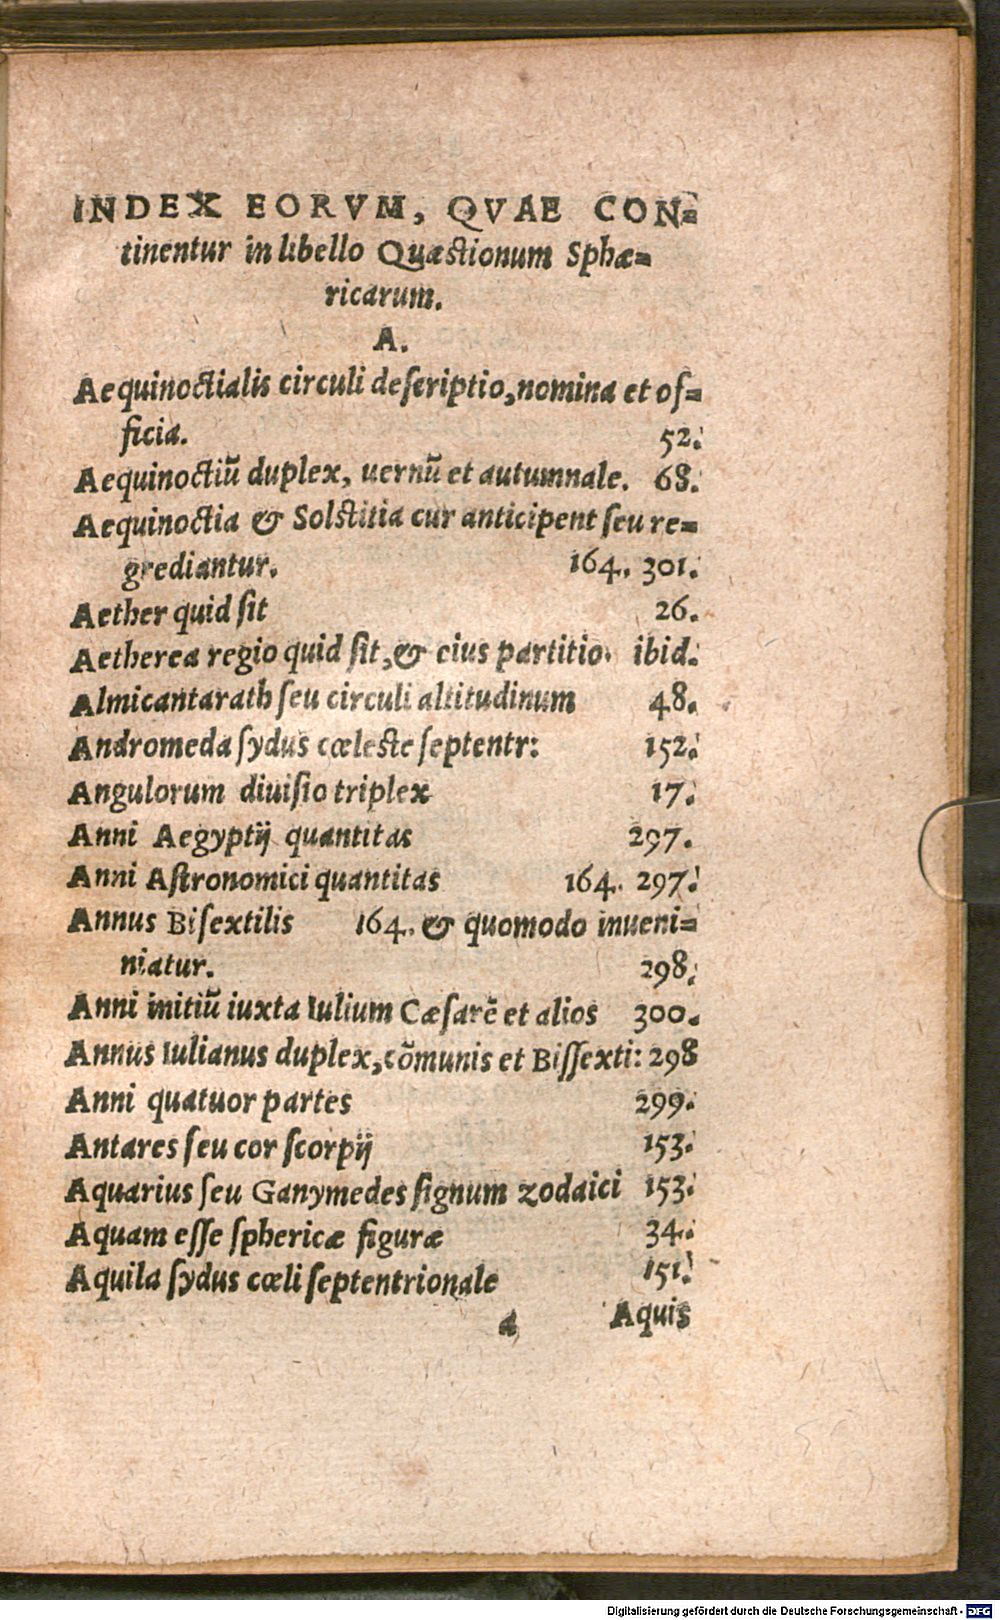 INDEX EORVM, QVAE CON=
tinentur in libello Quæstionum Sphæ=
ricarum.
A.
Aequinoctialis circuli deſcriptio, nomina et of=
ficia. 52.
Aequinoctiũ duplex, uernũ et autumnale. 68.
Aequinoctia & Solstitia cur anticipent ſeu re=
grediantur. 164. 301.
Aether quid ſit 26.
Aetherea regio quid ſit, & eius partitio. ibid.
Almicantarath ſeu circuli altitudinum 48.
Andromeda ſydus cœleste ſeptentr: 152.
Angulorum diuiſio triplex 17.
Anni Aegyptij quantitas 297.
Anni Aſtronomici quantitas 164. 297.
Annus Biſextilis 164. & quomodo inueni=
niatur. 298.
Anni initiũ iuxta Iulium Cæſarẽ et alios 300.
Annus Iulianus duplex, cõmunis et Biſſexti: 298
Anni quatuor partes 299.
Antares ſeu cor ſcorpij 153.
Aquarius ſeu Ganymedes ſignum zodaici 153.
Aquam eſſe ſphericæ figuræ 34.
Aquila ſydus cœli ſeptentrionale 151.
a Aquis
Digitalisierung gefördert durch die Deutsche Forschungsgemeinschaft - DFG